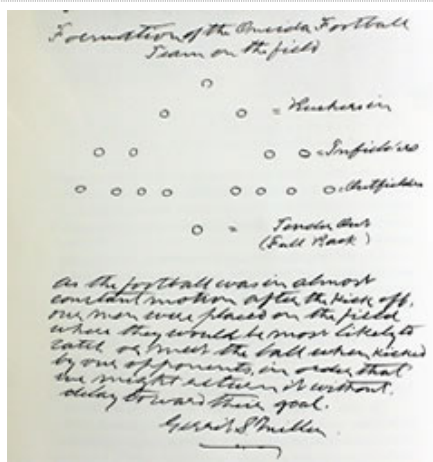 Formation of the Oneida Football
Team on the field
= Rushers in
= Infielders
= Outfielders
= Tends Out
(Full Back)
As the football was in almost
constant motion after the kick off,
our men were placed on the field
where they would be most likely to
catch or meet the ball when kicked
by our opponents, in order that
we might return it without
delay toward their goal.
Gerrit S. Miller